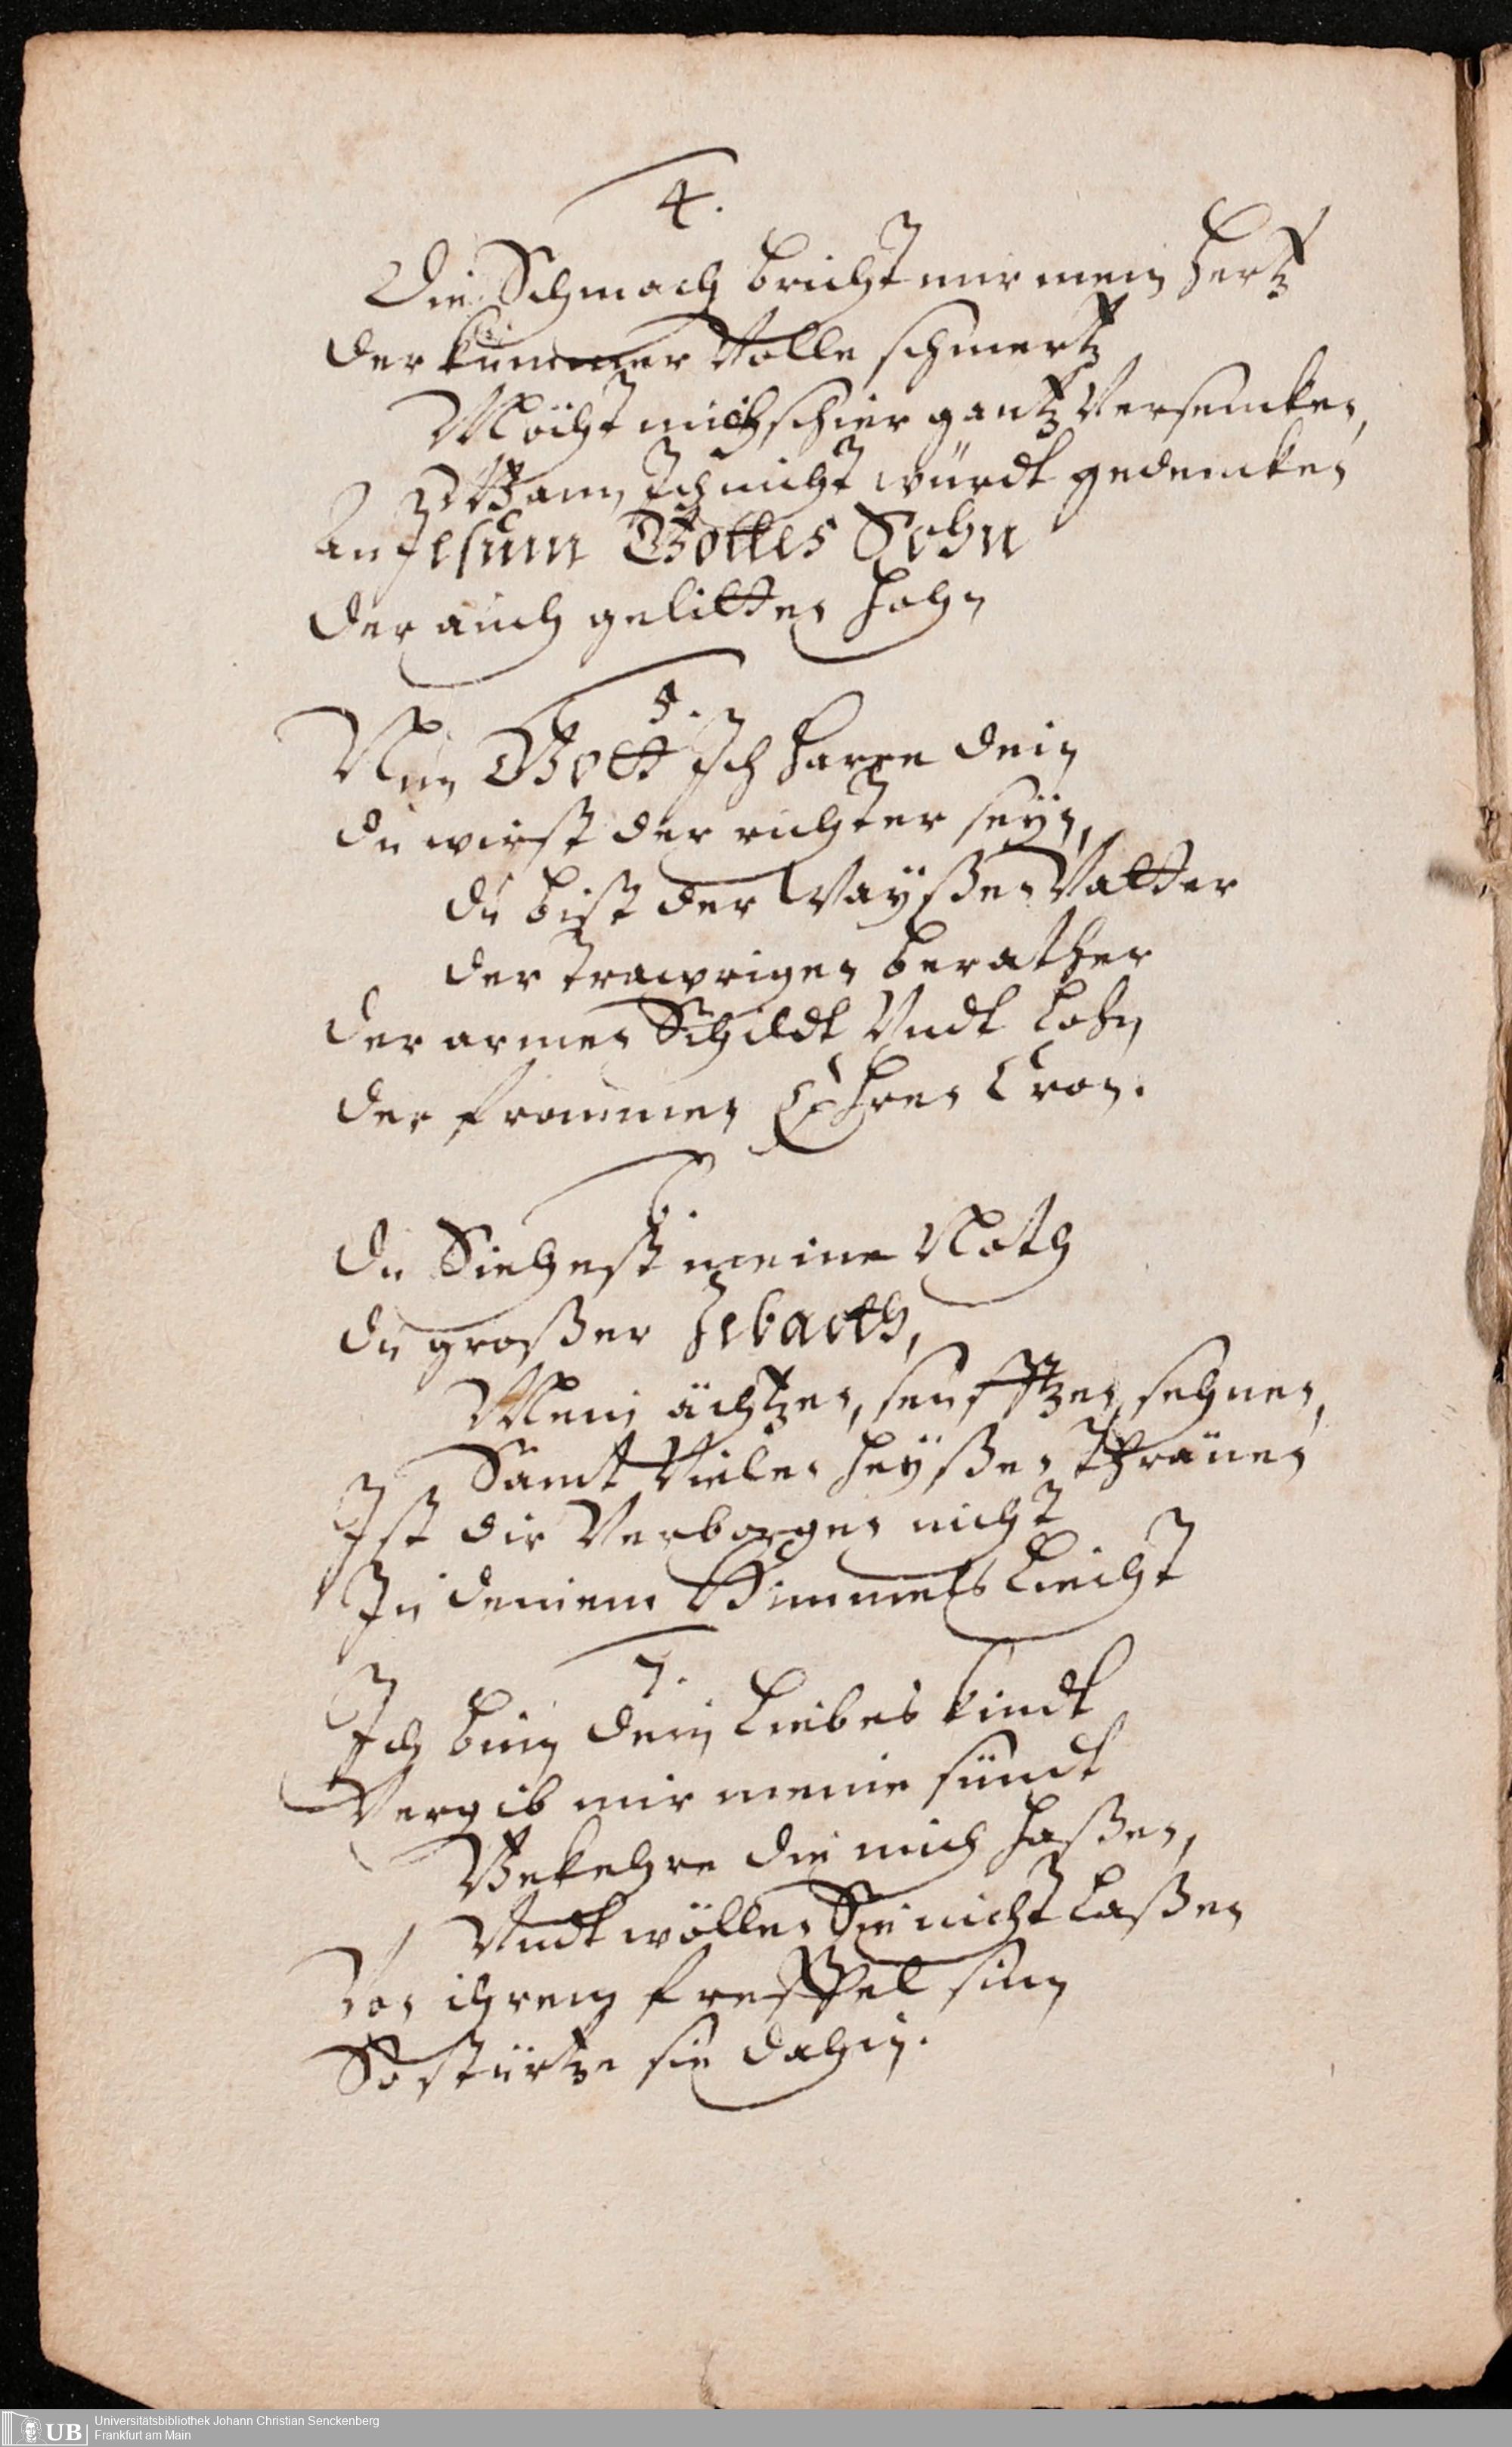 4.
Die Schmach bricht mir mein Hertz
der kummer Volle schmertz
Möcht mich schier gantz Versencken,
Wann Ich nicht würdt gedencken
An Jesum Gottes Sohn
der auch gelitten hohn
5.
Nun Gott Ich harre dein
du wirst der richter seÿn,
du bist der Waÿßen Vatter
der trawrigen berather
der armen Schildt Vndt Lohn
der frommen Ehren Cron.
6.
du Siehest meine Noth
du großer Zebaoth,
Mein ächtzen, seufftzen, sehnen,
Samt Vielen heÿßen Thränen
Ist dir Verborgen nicht
In deinem Himmels Liecht
7.
Ich bin dein Liebes kindt
Vergib mir meine sündt
Bekehre die mich haßen,
Vndt wöllen Sie nicht Laßen
Von ihrem freffel sinn
So stürtze sie dahin.
Universitätsbibliothek Johann Christian Senckenberg
Frankfurt am Main
UB